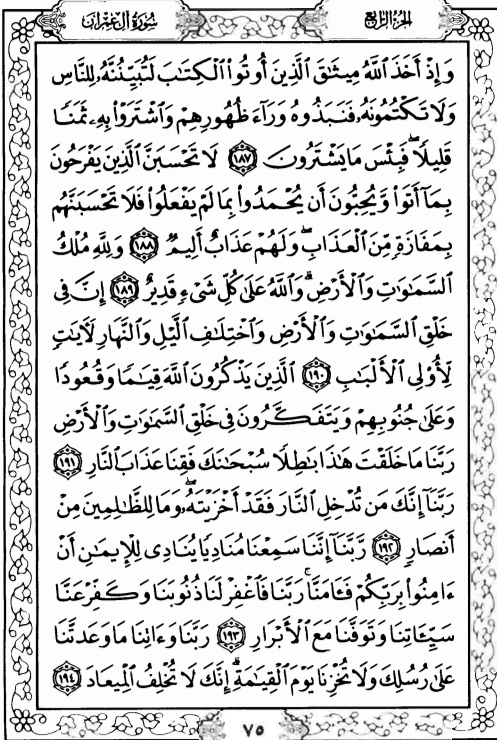 سُورَةُ آلِ عِمْرَان
الجُزءُ الرَّابِع
وَإِذْ أَخَذَ ٱللَّهُ مِيثَٰقَ ٱلَّذِينَ أُوتُوا۟ ٱلْكِتَٰبَ لَتُبَيِّنُنَّهُۥ لِلنَّاسِ
وَلَا تَكْتُمُونَهُۥ فَنَبَذُوهُ وَرَآءَ ظُهُورِهِمْ وَٱشْتَرَوْا۟ بِهِۦ ثَمَنًا
قَلِيلًا ۖ فَبِئْسَ مَا يَشْتَرُونَ ١٨٧ لَا تَحْسَبَنَّ ٱلَّذِينَ يَفْرَحُونَ
بِمَآ أَتَوا۟ وَّيُحِبُّونَ أَن يُحْمَدُوا۟ بِمَا لَمْ يَفْعَلُوا۟ فَلَا تَحْسَبَنَّهُم
بِمَفَازَةٍ مِّنَ ٱلْعَذَابِ ۖ وَلَهُمْ عَذَابٌ أَلِيمٌ ١٨٨ وَلِلَّهِ مُلْكُ
ٱلسَّمَٰوَٰتِ وَٱلْأَرْضِ ۗ وَٱللَّهُ عَلَىٰ كُلِّ شَىْءٍ قَدِيرٌ ١٨٩ إِنَّ فِى
خَلْقِ ٱلسَّمَٰوَٰتِ وَٱلْأَرْضِ وَٱخْتِلَٰفِ ٱلَّيْلِ وَٱلنَّهَارِ لَءَايَٰتٍ
لِّأُو۟لِى ٱلْأَلْبَٰبِ ١٩٠ ٱلَّذِينَ يَذْكُرُونَ ٱللَّهَ قِيَٰمًا وَقُعُودًا
وَعَلَىٰ جُنُوبِهِمْ وَيَتَفَكَّرُونَ فِى خَلْقِ ٱلسَّمَٰوَٰتِ وَٱلْأَرْضِ
رَبَّنَا مَا خَلَقْتَ هَٰذَا بَٰطِلًا سُبْحَٰنَكَ فَقِنَا عَذَابَ ٱلنَّارِ ١٩١
رَبَّنَآ إِنَّكَ مَن تُدْخِلِ ٱلنَّارَ فَقَدْ أَخْزَيْتَهُۥ ۖ وَمَا لِلظَّٰلِمِينَ مِنْ
أَنصَارٍ ١٩٢ رَّبَّنَآ إِنَّنَا سَمِعْنَا مُنَادِيًا يُنَادِى لِلْإِيمَٰنِ أَنْ
ءَامِنُوا۟ بِرَبِّكُمْ فَـَٔامَنَّا ۚ رَبَّنَا فَٱغْفِرْ لَنَا ذُنُوبَنَا وَكَفِّرْ عَنَّا
سَيِّـَٔاتِنَا وَتَوَفَّنَا مَعَ ٱلْأَبْرَارِ ١٩٣ رَبَّنَا وَءَاتِنَا مَا وَعَدتَّنَا
عَلَىٰ رُسُلِكَ وَلَا تُخْزِنَا يَوْمَ ٱلْقِيَٰمَةِ ۗ إِنَّكَ لَا تُخْلِفُ ٱلْمِيعَادَ ١٩٤
٧٥